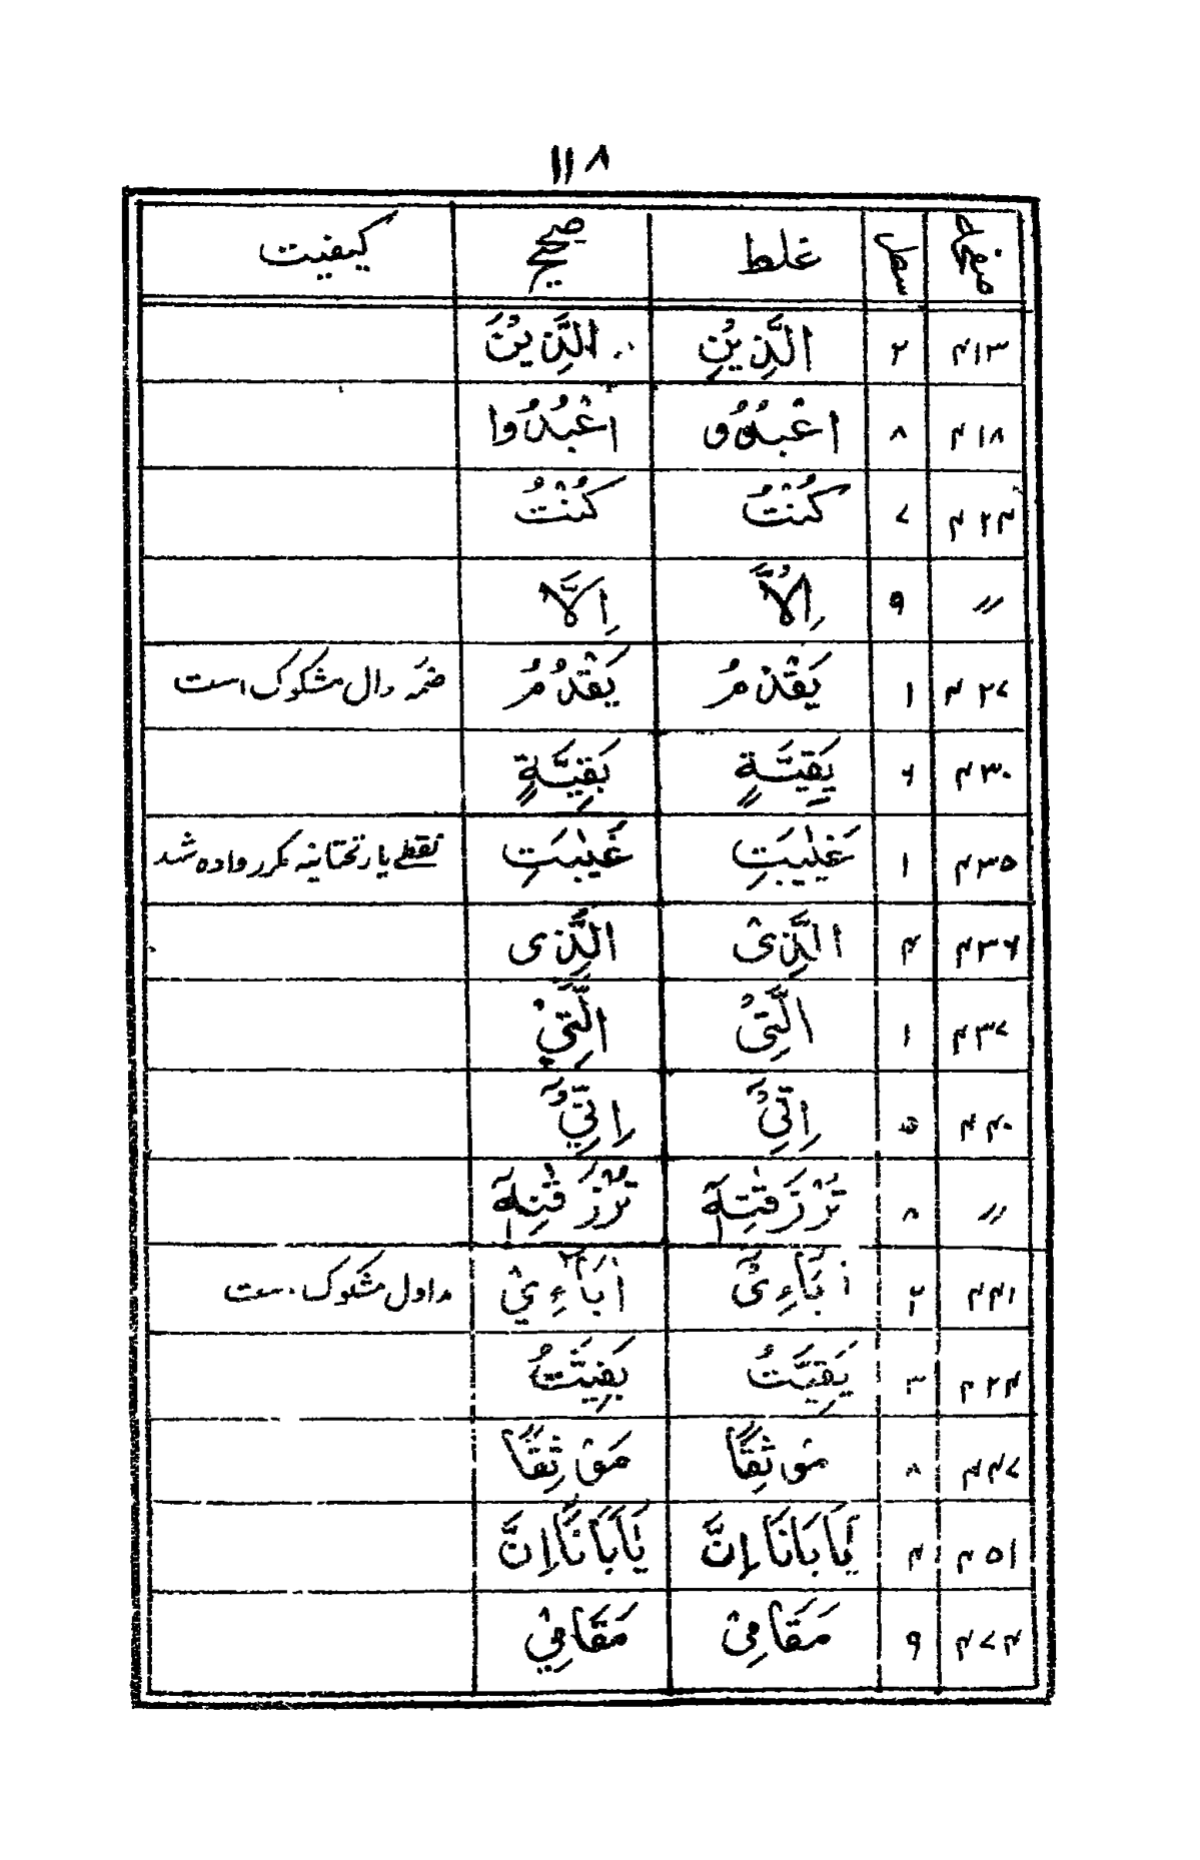 ۱۱۸
صفحہ سطر غلط صحیح کیفیت
۴۱۳ ۲ الَّذِیْنِ الَّذِیْنَ
۴۱۸ ۸ اعْبُدُوْ اعْبُدُوا
۴۲۴ ۷ کُنْتُ کُنْتُ
〃 ۹ اِلَّا اِلَّا
۴۲۷ ۱ یَقْدْمُ یَقْدُمُ ضمّہ دال مشکوک است
۴۳۰ ۶ یَقِیَّةٍ بَقِیَّةٍ
۴۳۵ ۱ غَیٰیٰبَتِ غَیٰبَتِ نقطے یا تحتانیہ مکرر دادہ شد
۴۳۶ ۴ الَّذِیْ الَّذِی
۴۳۷ ۱ الَّتِیْ الَّتِيْ
۴۴۰ ۵ اِنِّیْٓ اِنِّيْٓ
〃 ۸ تُرْزَقٰتِهٖٓ تُرْزَقٰنِهٖٓ
۴۴۱ ۲ اٰبَآءِیْ اٰبَآءِيْ مد اول مشکوک است
۴۲۴ ۳ یَقِیَّتُ بَقِیَّتُ
۴۴۷ ۸ مَوْثِقًا مَوْثِقًا
۴۵۱ ۴ یٰٓاَبَانَا اِنَّ یٰٓاَبَانَآ اِنَّ
۴۷۴ ۹ مَقَامِیْ مَقَامِيْ